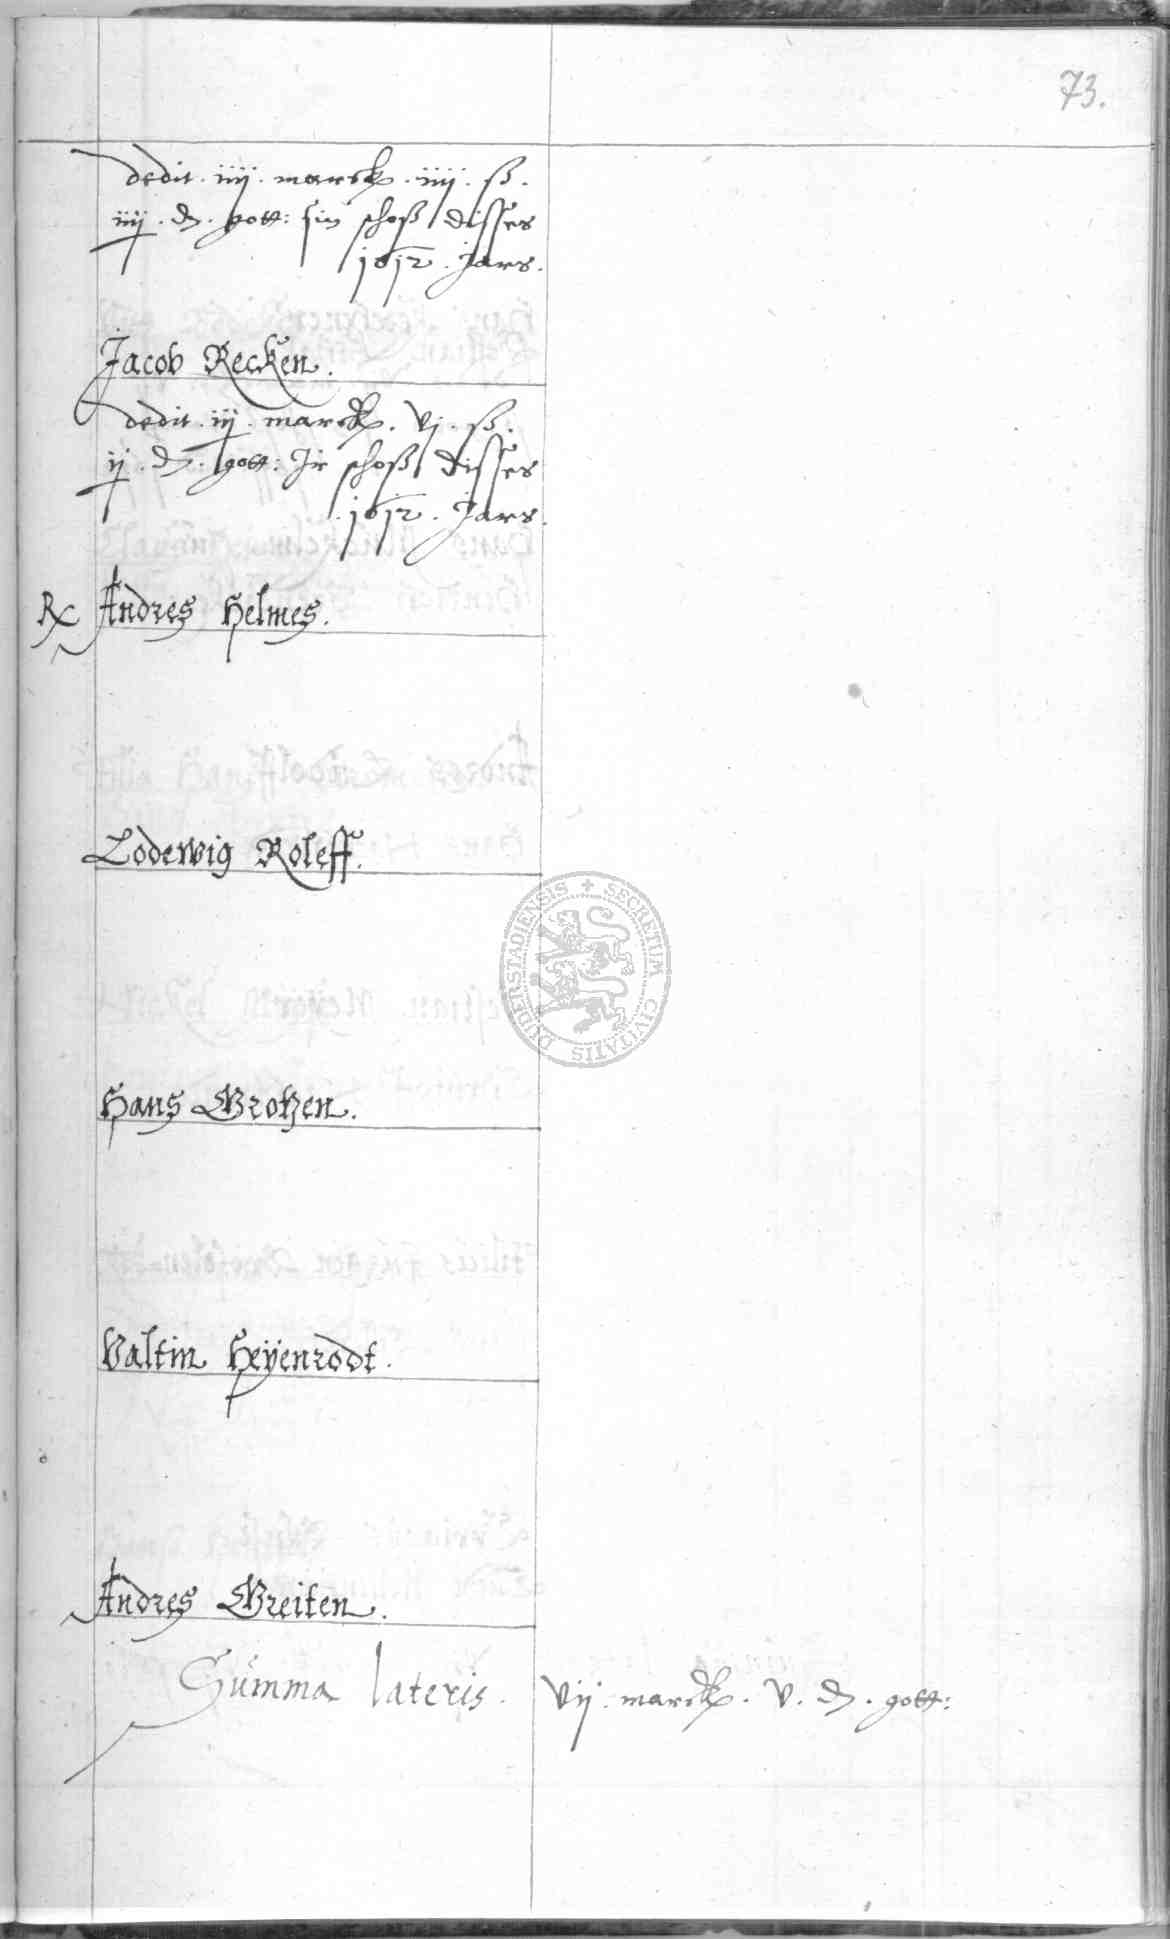 73.
dedit . iiij . marck . iiij . ß .
iiij . d . gott: sin schoß disses
1612 . Jars .
Jacob Recken .
dedit . iij . marck . vj . ß .
ij . d . gott: Jr schoß disses
. 1612 . Jars .
Rx Andres Helmes .
Lodewig Roleff .
Hans Grotzen .
Valtin Heÿenrodt .
Andres Greiten .
Summa lateris . vij . marck . v . d . gott:
DUDERSTADIENSIS + SECRETUM CIVITATIS